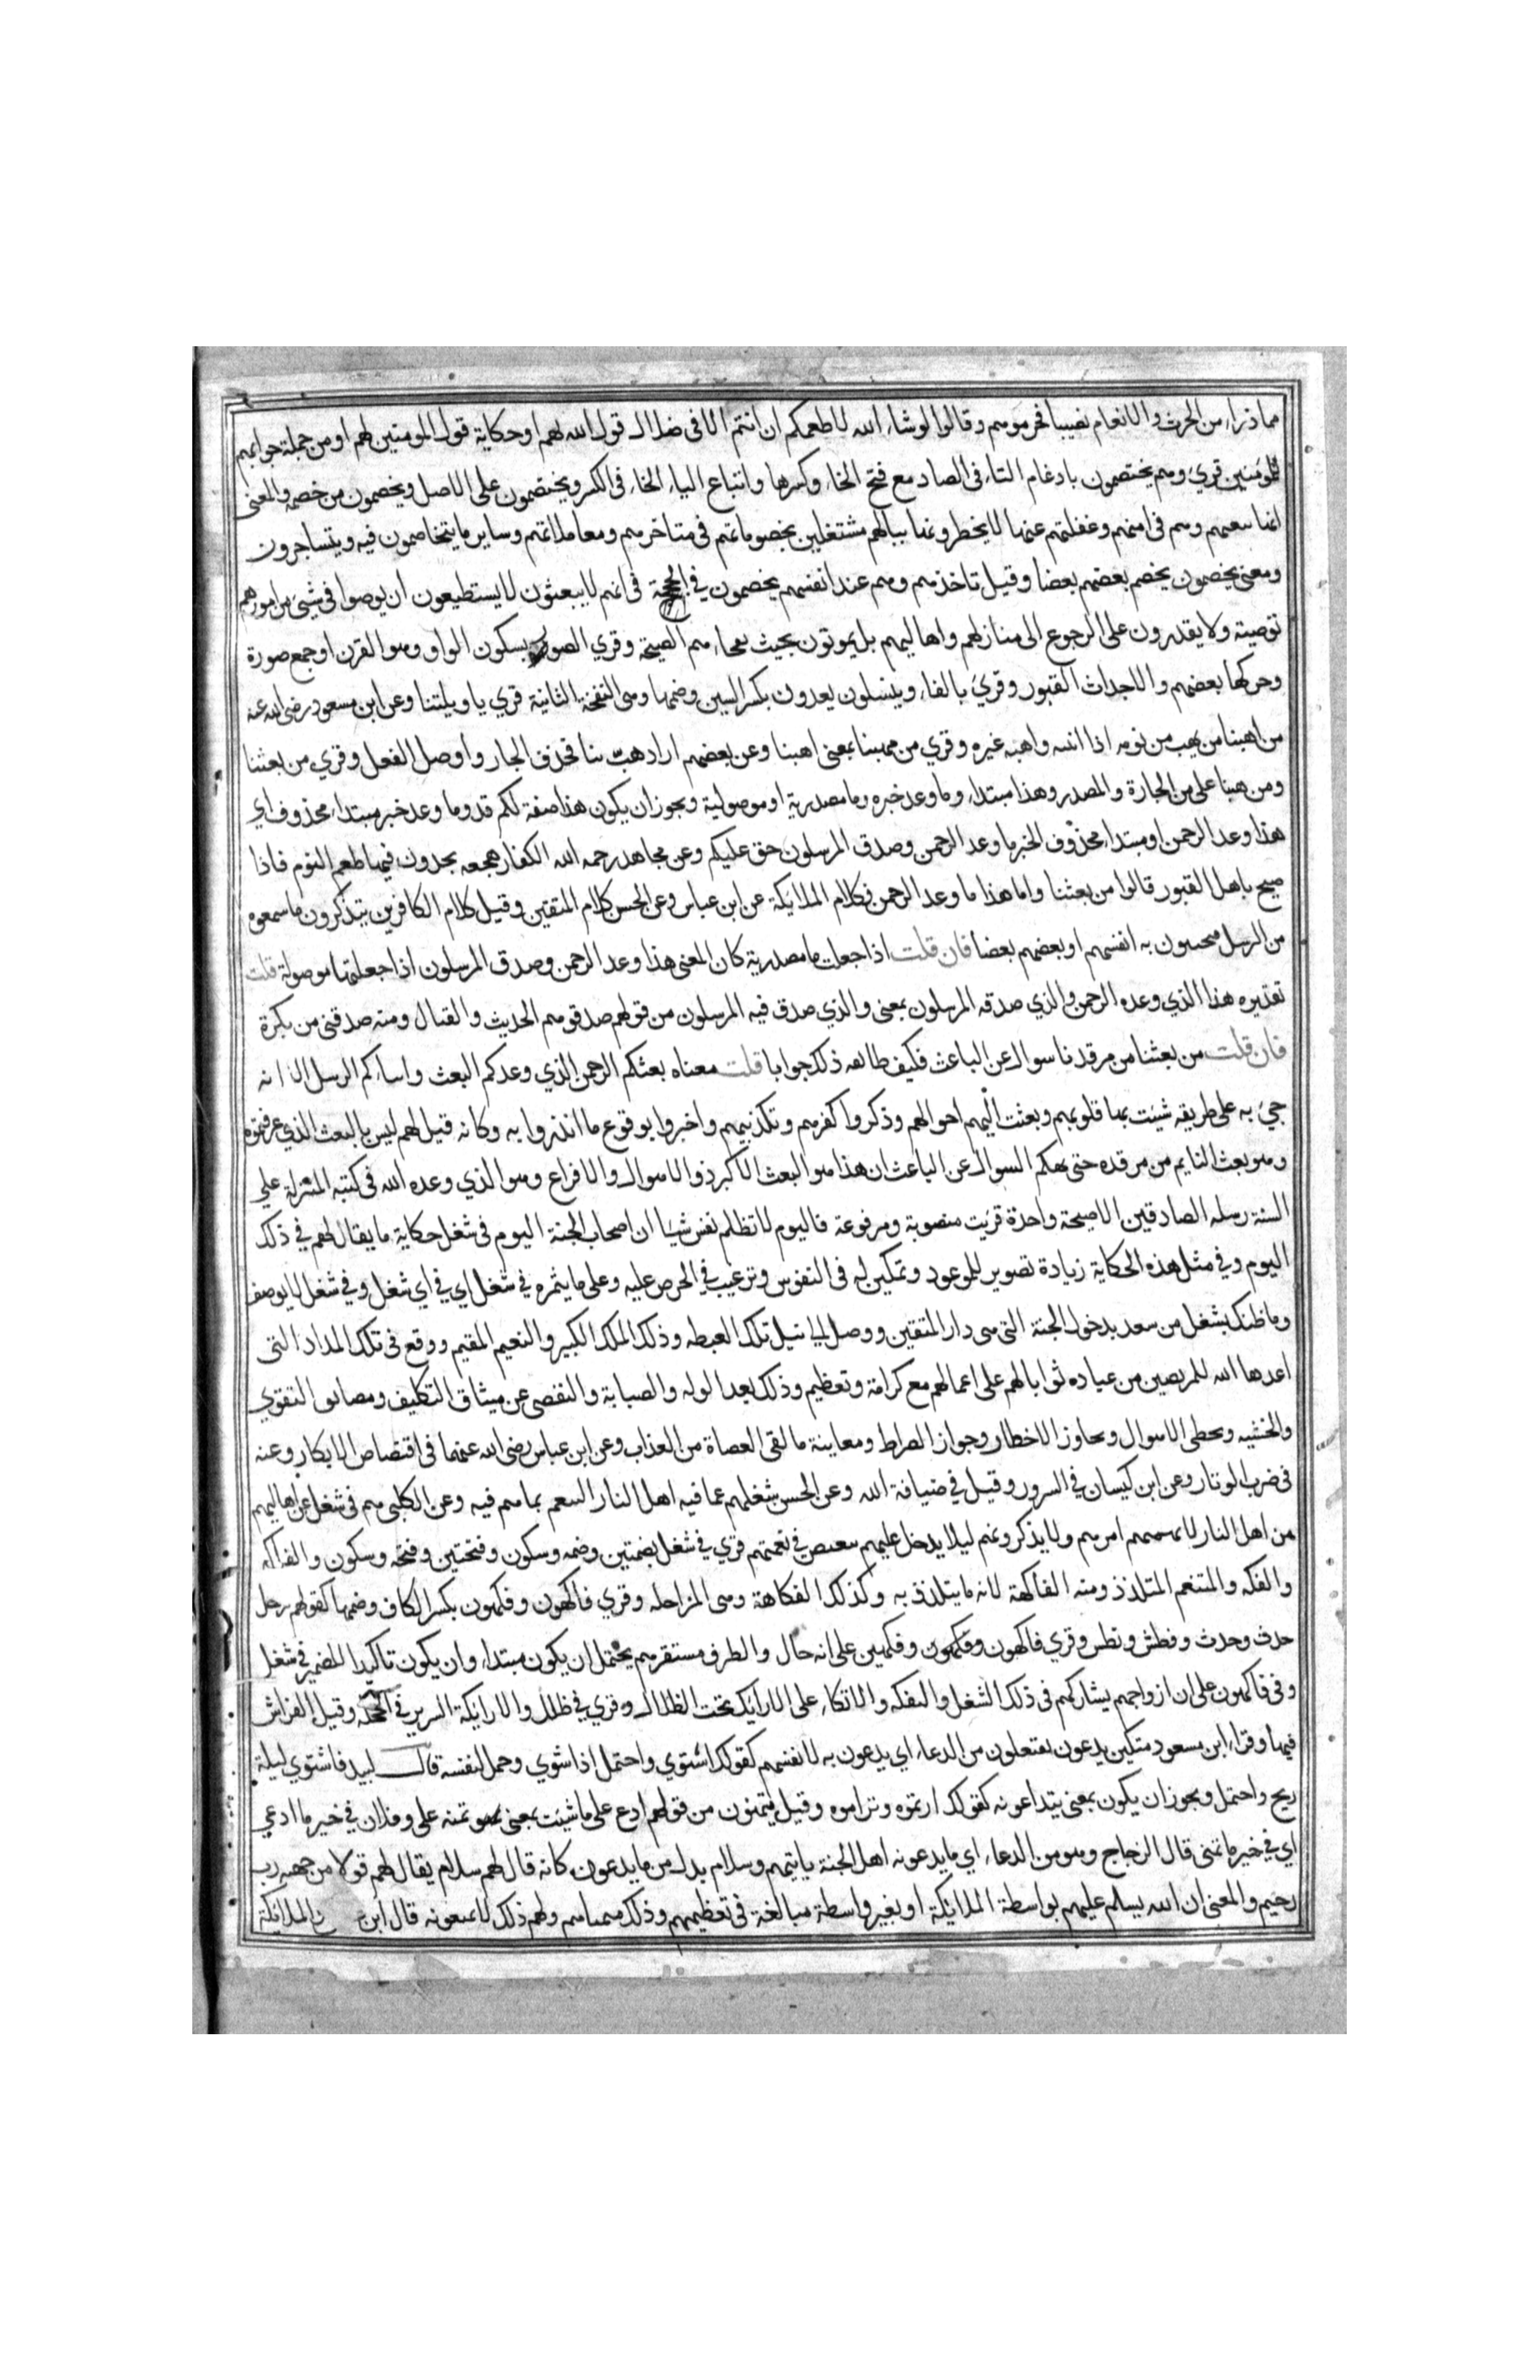 مما ذراء من الحرث والانعام نصيبا فحرموهم وقالوا لوشاء الله لاطعمكم ان انتم الا فى ضلال قول الله لهم او حكاية قول المومنين لهم او من جملة جوابهم
للمومنين قرئ وهم يختصمون بادغام التاء فى الصاد مع فتح الخاء وكسرها واتباع الياء الخاء فى الكسر ويختصمون على الاصل ويخصمون من خصمه والمعنى
انها وهم فى امنهم وغفلتهم عنها لا يخطرونها ببالهم مشتغلين بخصوماتهم فى متاجرهم ومعاملاتهم وساير ما يتخاصمون فيه ويتساجرون
ومعنى يخصمون يخصم بعضهم بعضا وقيل تاخذهم وهم عند انفسهم يخصمون في الحجة فى انهم لا يبعثون لا يستطيعون ان يوصوا فى شيئ من امورهم
توصية ولا يقدرون على الرجوع الى منازلهم واهاليهم بل يموتون بحيث هم الصيحة وقري الصور بسكون الواو وهو القرن او جمع صورة
وحركها بعضهم والاجداث القبور وقرئ بالفاء وينسلون يعدون بكسر السين وضمها وهى النفخة الثانية قري يا ويلتنا وعن ابن مسعود رضى الله عنه
من اهبنا من هب من نومه اذا انتبه واهبه غيره وقري من هبنا بمعنى اهبنا وعن بعضهم اراد هب بنا فحذف الجار واوصل الفعل وقري من بعثنا
ومن هبنا على من الجارة والمصدر وهذا مبتداء وما وعد خبره وما مصدرية او موصولية ويجوز ان يكون هذا صفة لكم قد وما وعد خبر مبتداء محذوف اى
هذا وعد الرحمن او مبتداء محذوف الخبر ما وعد الرحمن وصدق المرسلون حق عليكم وعن مجاهد رحمه الله الكفار هجعه يجدون فيها طعم النوم فاذا
صيح باهل القبور قالوا من بعثنا واما هذا ما وعد الرحمن فكلام الملايكة عن ابن عباس وعن الحسن كلام المتقين وقيل كلام الكافرين يتذكرون ما سمعوه
من الرسل به انفسهم او بعضهم بعضا فان قلت اذا جعلت ما مصدرية كان المعنى هذا وعد الرحمن وصدق المرسلون اذا جعلتها موصولة قلت
تقديره هذا الذي وعده الرحمن والذي صدقه المرسلون بمعنى والذي صدق فيه المرسلون من قولهم صدقوهم الحديث والقتال ومنه صدقنى من بكرة
فان قلت من بعثنا من مرقدنا سوال عن الباعث فكيف طابقه ذلك جوابا قلت معناه بعثكم الرحمن الذي وعدكم البعث الرسل الا انه
جيئ به على طريقه شيئت بها قلوبهم وبعثت اليهم احوالهم وذكروا كفرهم وتكذيبهم واخبروا بوقوع ما انذروا به وكانه قيل لهم ليس بالبعث الذي عرفتموه
وهو بعث النايم من مرقده حتى يهمكم السوال عن الباعث ان هذا هو البعث الاكبر ذو الاهوال والافزاع وهو الذي وعده الله فى كتبه المنزلة على
السنة رسله الصادقين الا صيحة واحدة قريت منصوبة ومرفوعة فاليوم لا تظلم نفس شيا ان اصحاب الجنة اليوم فى شغل حكاية ما يقال لهم فى ذلك
اليوم وفي مثل هذه الحكاية زيادة تصوير للموعود وتمكين له فى النفوس وترغيب فى الحرص عليه وعلى ما يثمره فى شغل اي فى اي شغل وفى شغل لا يوصف
وما ظنك بشغل من سعد بدخول الجنة التى هى دار المتقين ووصل الى نيل تلك الغبطه وذلك الملك الكبير والنعيم المقيم ووقع فى تلك الملاذ التى
اعدها الله للمرتضين من عباده ثوابا لهم على اعمالهم مع كرامة وتعظيم وذلك بعد الوله والصبابة والتفصى عن ميثاق التكليف ومضايق التقوي
والخشيه وتخطى الاهوال وتجاوز الاخطار وجواز الصراط ومعاينة ما لقى العصاة من العذاب وعن ابن عباس رضى الله عنهما فى اقتضاض الابكار وعنه
فى ضرب الاوتار وعن ابن كيسان في السرور وقيل في ضيافة الله وعن الحسن شغلهم عما فيه اهل النار التنعم بما هم فيه وعن الكلبى هم فى شغل عن اهاليهم
من اهل النار لا يهمهم امرهم ولا يذكرونهم ليلا يدخل عليهم تنغيص فى نعمتهم قري في شغل بضمتين وضمه وسكون وفتحتين وفتحه وسكون والفاكه
والفكه والمتنعم المتلذذ ومنه الفاكهة لانه ما يتلذذ به وكذلك الفكاهة وهى المزاحه وقري فاكهون وفكهون بكسر الكاف وضمها كقولهم رجل
حدث وحدث وفطن ونطس وقري فاكهون وفكهون وفكهين على انه حال والظرف مستقرهم يحتمل ان يكون مبتداء وان يكون تاكيدا للضمير فى شغل
وفى فاكهون على ان ازواجهم يشاركهم فى ذلك الشغل والتفكه والاتكاء على الارايك تحت الظلال وقري في ظلل والاريكة السرير فى الحجلة وقيل الفراش
فيها وقراء ابن مسعود متكين يدعون يفتعلون من الدعاء اي يدعون به لانفسهم كقولك اشتوي واحتمل اذا شوي وحمل لنفسه قال لبيد فاشتوي ليلة
ريح واحتمل ويجوز ان يكون بمعنى يتداعونه كقولك ارتموه وتراموه وقيل يتمنون من قولهم ادع على ما شيئت بمعنى تمنه على وفلان في خير ما ادعي
اي في خير ما تمنى قال الزجاج وهو من الدعاء اي ما يدعونه اهل الجنة ياتيهم وسلام بدل من ما يدعون كانه قال لهم سلام يقال لهم قولا من جهه رب
رحيم والمعنى ان الله يسلم عليهم بواسطة الملايكة او بغير واسطة مبالغة فى تعظيمهم وذلك متمناهم ولهم ذلك لا يمنعونه قال ابن والملايكة